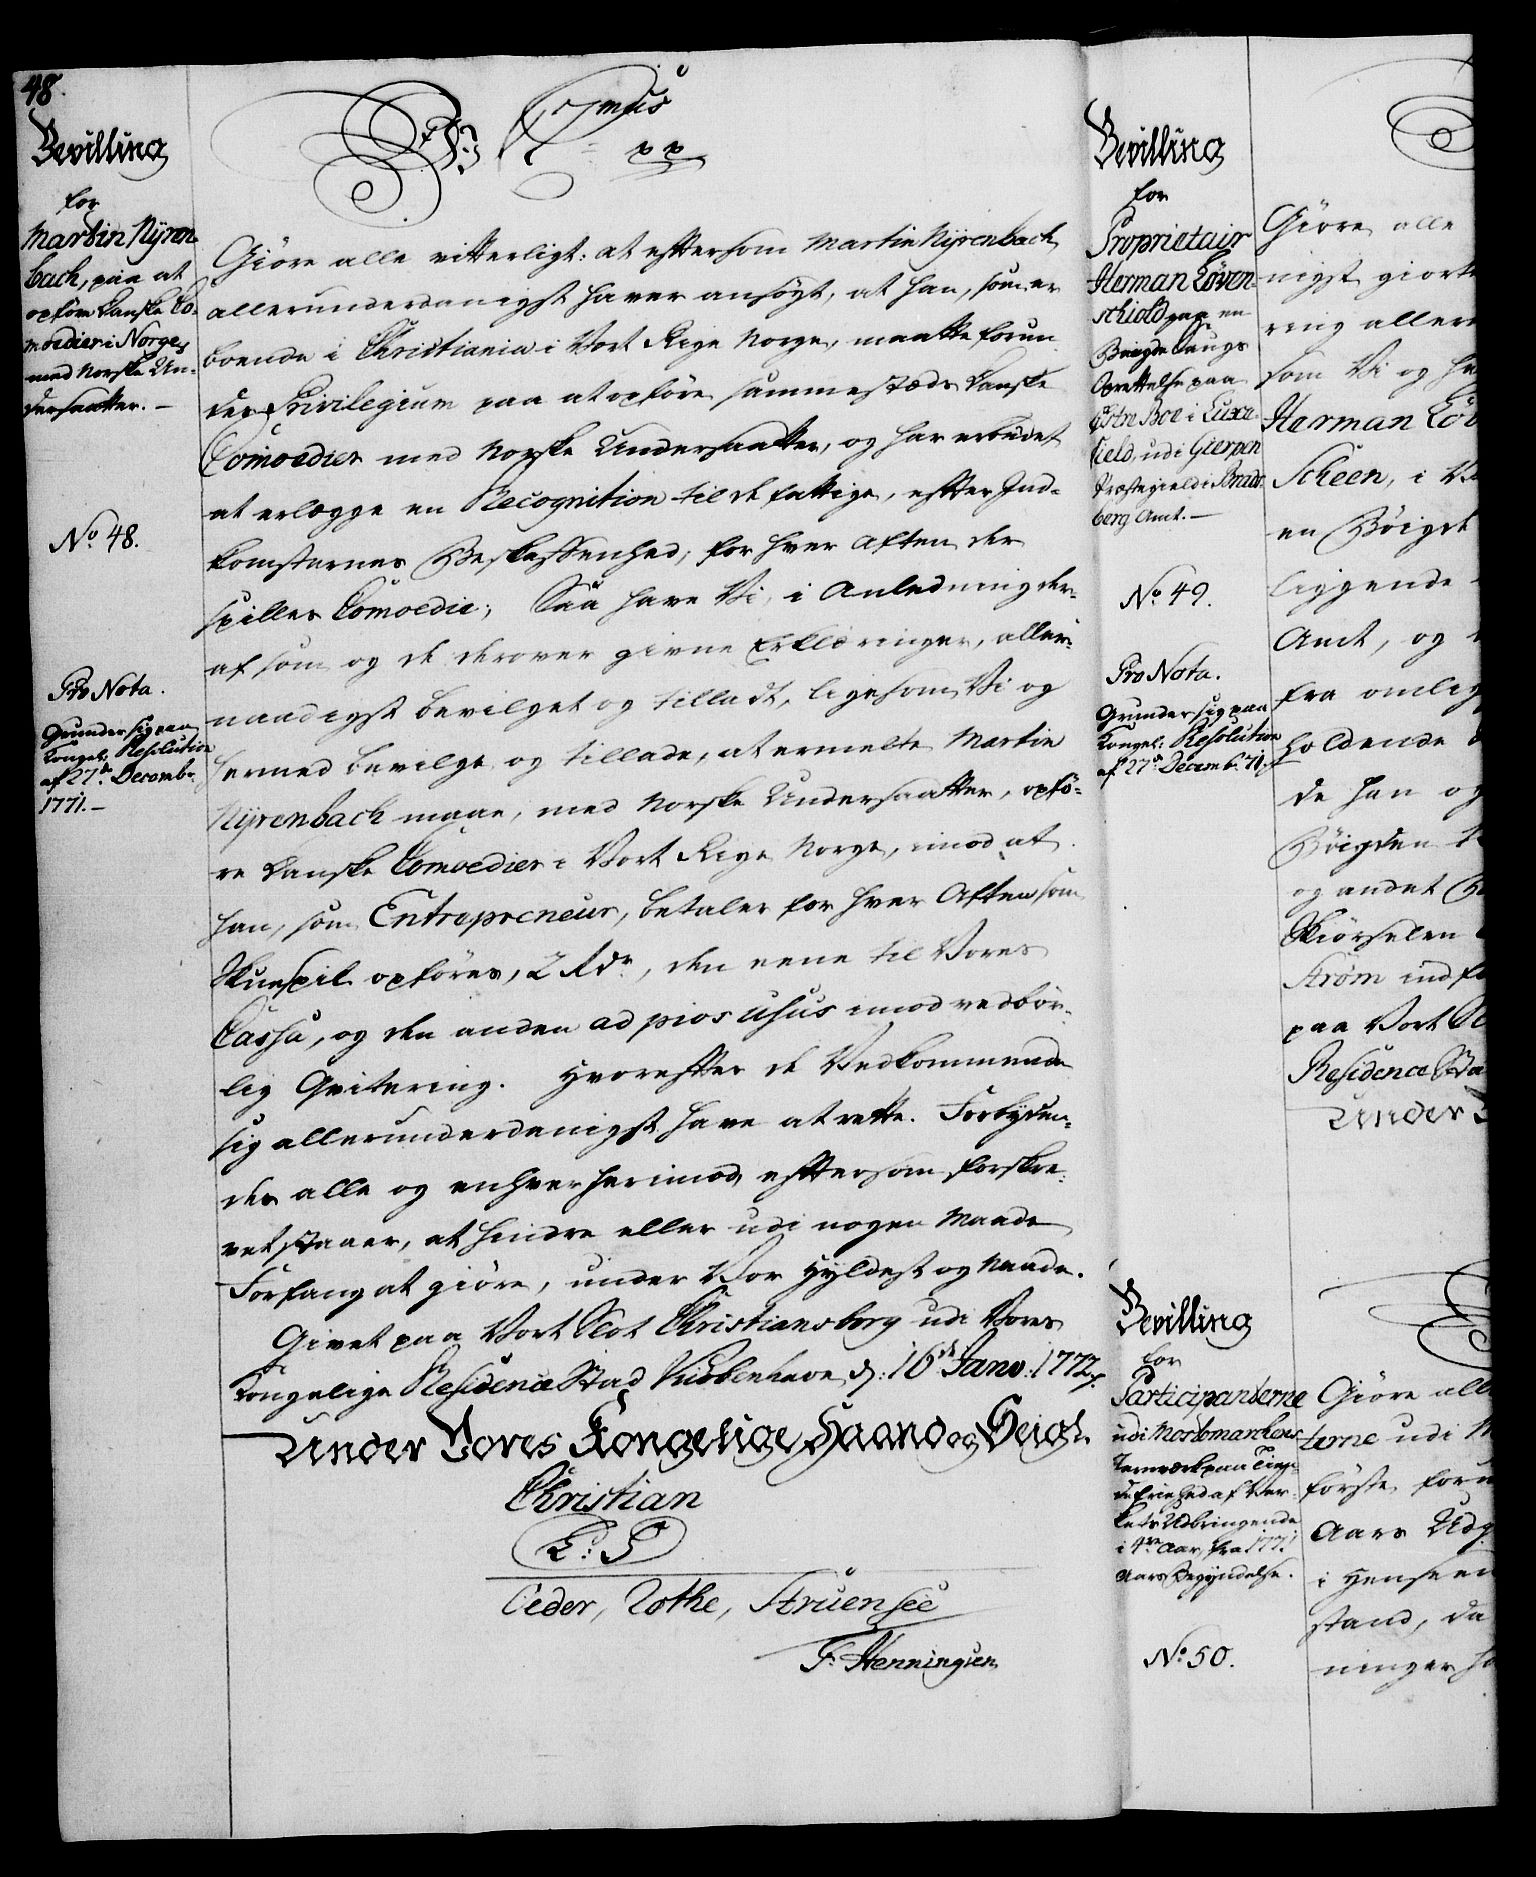 48.
Bevilling
for
Martin Nÿren-
bach, paa at
opføre Danske Co-
moedier i Norge,
med Norske Un-
dersaatter. —
No. 48.
Pro Nota.
Grunder sig paa
Kongel: Resolution
af 27de Decembr.
1771. —
Ch: 7mus
pp
Giöre alle vitterligt: at efftersom Martin Nÿrenbach
allerunderdanigst haver ansögt, at han, som er
boende i Christiania i Vort Rige Norge, maatte forun-
des Privilegium paa at opföre sammestæds Danske
Comoedier med Norske Undersaatter, og har erbudet
at erlægge en Recognition til de fattige, effter Ind-
komsternes Beskaffenhed, for hver Aften der
spilles Comoedie; Saa have Vi, i Anledning der-
af som og de derover givne Erklæringer, aller-
naadigst bevilget og tilladt, ligesom Vi og
hermed bevilge og tillade, at ermelte Martin
Nÿrenbach maae, med Norske Undersaatter, opfö-
re Danske Comoedier i Vort Rige Norge, imod at
han, som Entrepreneur, betaler for hver Aften som
Skuespil opföres, 2 Rdr, den eene til Vores
Cassa, og den anden ad pios usus imod vedbör-
lig Qvitering. Hvoreffter de Vedkommende
sig allerunderdanigst have at rette. Forbÿden-
des alle og enhver herimod, efftersom forskre-
vet staaer, at hindre eller udi nogen Maade
Forfang at giöre, under Vor Hyldest og Naade.
Givet paa Vort Slot Christiansborg udi Vores
Kongelige Residence Stad Kiöbenhavn, d: 16de Janv: 1772.
Under Vores Kongelige Haand og Seigl.
Christian
L: S
Oeder, Rothe, Struensee
F. Henningsen
Bevilling
for
Proprietair
Herman Löven-
schiold paa en
Bøigde Laugs
Oprettelse paa
Østre Boe i Luxe-
field, udi Gierpen
Præstegield i Brads-
berg Amt. —
No. 49.
Pro Nota.
Grunder sig paa
Kongel: Resolution
af 27de Decemb. 71.
Giöre alle
nigst giort
ring aller
som Vi og he
Herman Löv
Scheen, i V
en Böigde
liggende
Amt, og
fra omlig
holdende
de han og
Böigden
og andet
Kiörselen
Ström indf
paa Vort Sl
Residence Sta
Under
Bevilling
for
Participanterne
udi Mostmarkens
Jernværk paa Tien-
de friehed af Ver-
kets Udbringende
i 4re Aar, fra 1771
Aars Begÿndelse.
No. 50.
Giöre all
terne udi M
förste for
Aars Udg
i Henseen
stand, da
ninger ha